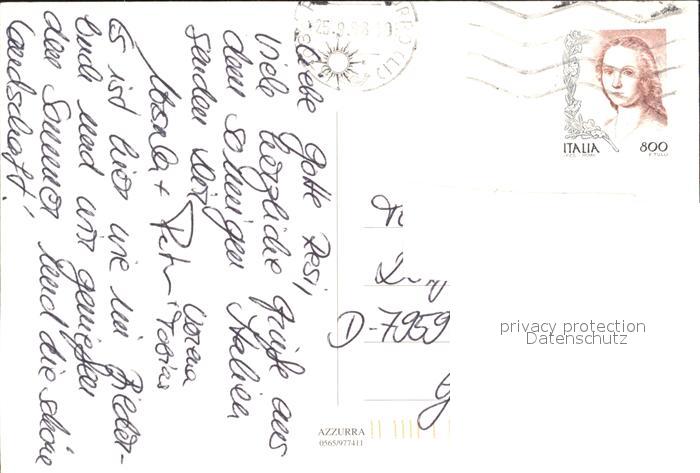 Liebe Gotte Resi,
Viele herzliche Grüße aus
dem sonnigen Italien
senden Dir
Verena
Monika + Peter + Tobias
Es ist hier wie im Bilder-
buch und wir genießen
den Sommer und die schöne
Landschaft!
25.9.98
ITALIA 800
D-7959
AZZURRA
0565/977411
privacy protection
Datenschutz